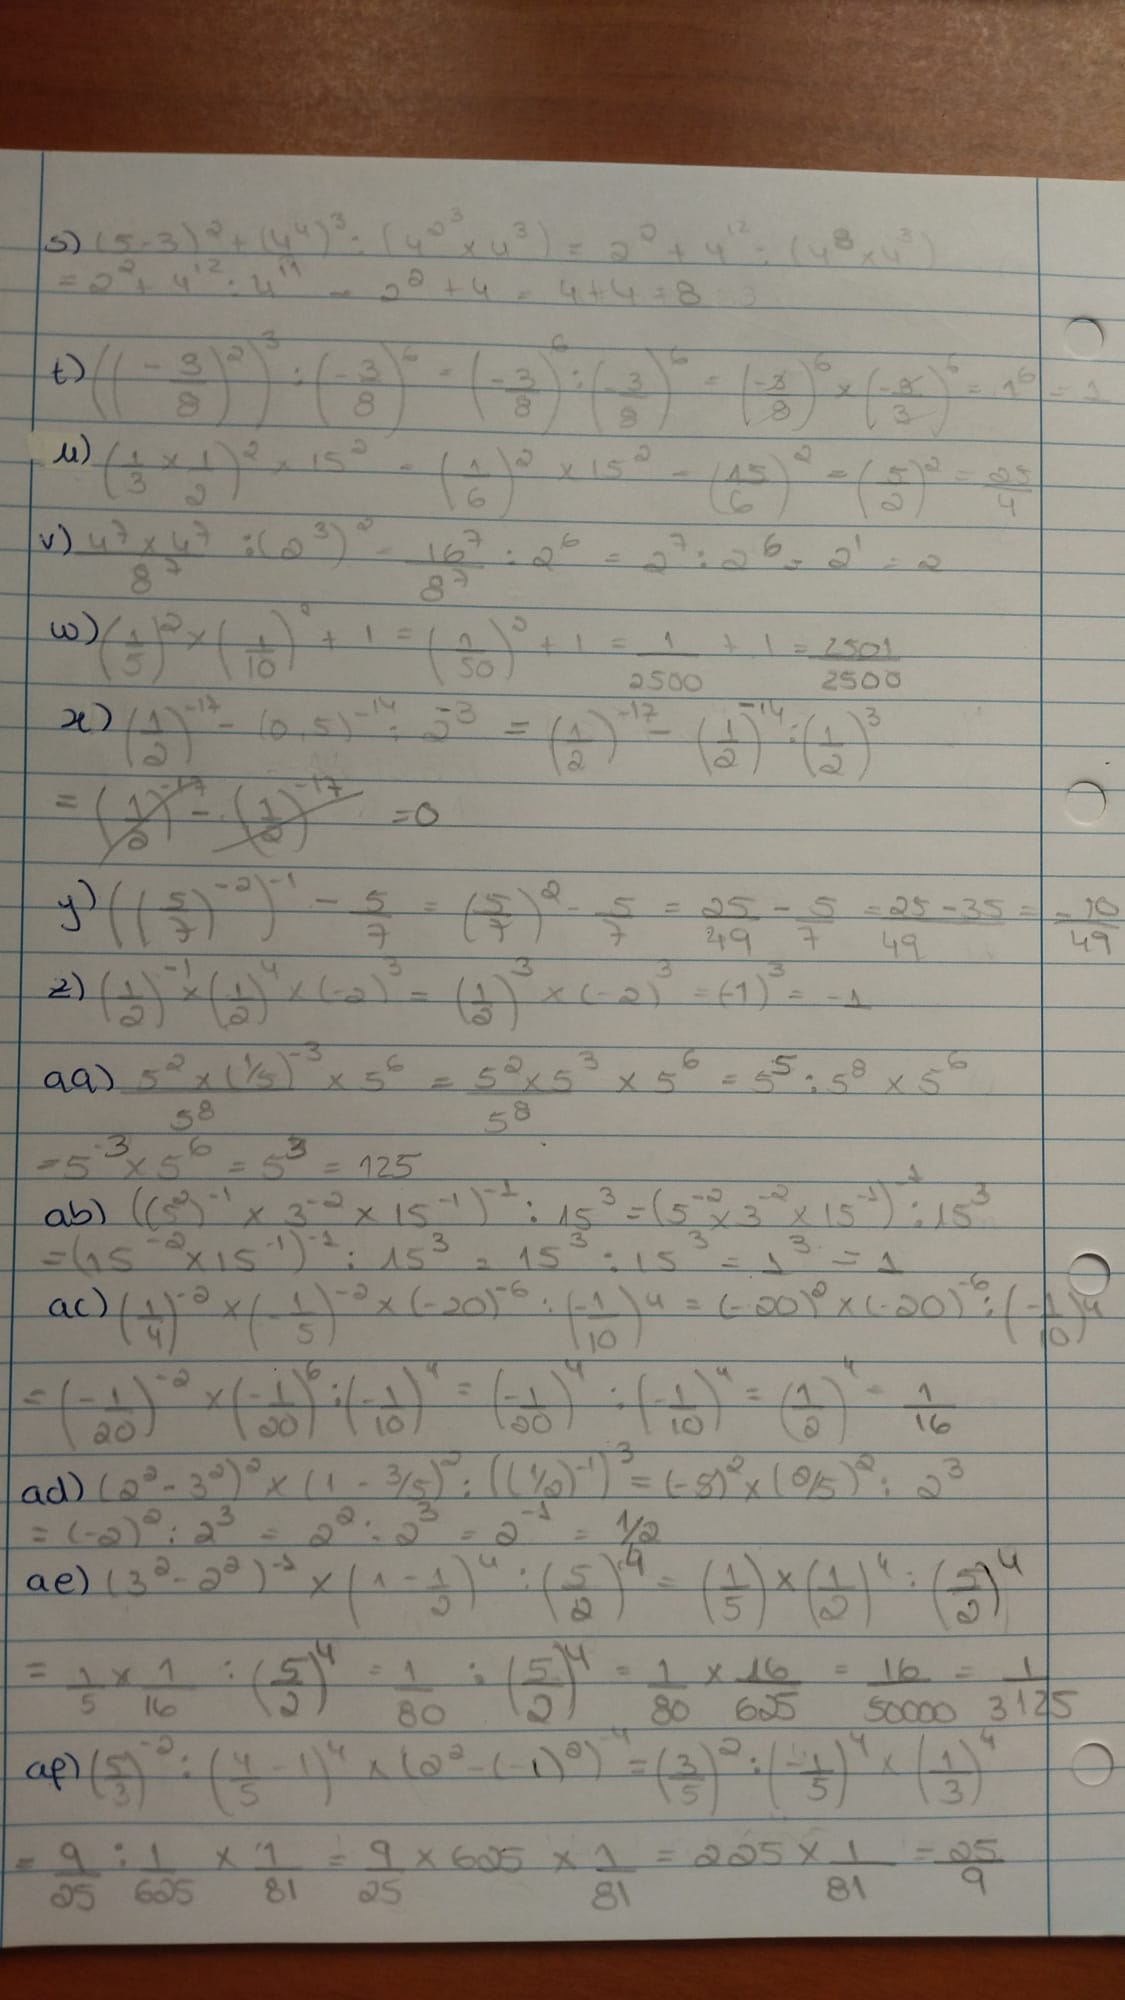 s) (5-3)² + (4⁴)³ : (4^2^3 × 4³) = 2² + 4¹² : (4⁸ × 4³)
= 2² + 4¹² : 4¹¹ = 2² + 4 = 4+4 = 8
t) ((-3/8)²)³ : (-3/8)⁶ = (-3/8)⁶ : (-3/8)⁶ = (-3/8)⁶ × (-8/3)⁶ = 1⁶ = 1
u) (1/3 × 1/2)² × 15² = (1/6)² × 15² = (15/6)² = (5/2)² = 25/4
v) 4⁷ × 4⁷ / 8⁷ : (2³)² = 16⁷/8⁷ : 2⁶ = 2⁷ : 2⁶ = 2¹ = 2
w) (1/5)² × (1/10)² + 1 = (1/50)² + 1 = 1/2500 + 1 = 2501/2500
x) (1/2)⁻¹⁷ - (0,5)⁻¹⁴ : 2⁻³ = (1/2)⁻¹⁷ - (1/2)⁻¹⁴ : (1/2)³
= (1/2)⁻¹⁷ - (1/2)⁻¹⁷ = 0
y) ((5/7)⁻²)⁻¹ - 5/7 = (5/7)² - 5/7 = 25/49 - 5/7 = 25-35/49 = -10/49
z) (1/2)⁻¹ × (1/2)⁴ × (-2)³ = (1/2)³ × (-2)³ = (-1)³ = -1
aa) 5² × (1/5)⁻³ × 5⁶ / 5⁸ = 5² × 5³ × 5⁶ / 5⁸ = 5⁵ : 5⁸ × 5⁶
= 5⁻³ × 5⁶ = 5³ = 125
ab) ((5²)⁻¹ × 3⁻² × 15⁻¹)⁻¹ : 15³ = (5⁻² × 3⁻² × 15⁻¹)⁻¹ : 15³
= (15⁻² × 15⁻¹)⁻¹ : 15³ = 15³ : 15³ = 1³ = 1
ac) (1/4)⁻² × (-1/5)⁻² × (-20)⁻⁶ : (-1/10)⁴ = (-20)² × (-20)⁻⁶ : (-1/10)⁴
= (-1/20)⁻² × (-1/20)⁶ : (-1/10)⁴ = (-1/20)⁴ : (-1/10)⁴ = (1/2)⁴ = 1/16
ad) (2² - 3²)² × (1 - 3/5)² : ((1/2)⁻¹)³ = (-5)² × (2/5)² : 2³
= (-2)² : 2³ = 2² : 2³ = 2⁻¹ = 1/2
ae) (3² - 2²)⁻¹ × (1 - 1/2)⁴ : (5/2)⁴ = (1/5) × (1/2)⁴ : (5/2)⁴
= 1/5 × 1/16 : (5/2)⁴ = 1/80 : (5/2)⁴ = 1/80 × 16/625 = 16/50000 = 1/3125
af) (5/3)⁻² : (4/5 - 1)⁴ × (2² - (-1)²)⁻⁴ = (3/5)² : (-1/5)⁴ × (1/3)⁴
= 9/25 : 1/625 × 1/81 = 9/25 × 625 × 1/81 = 225 × 1/81 = 25/9